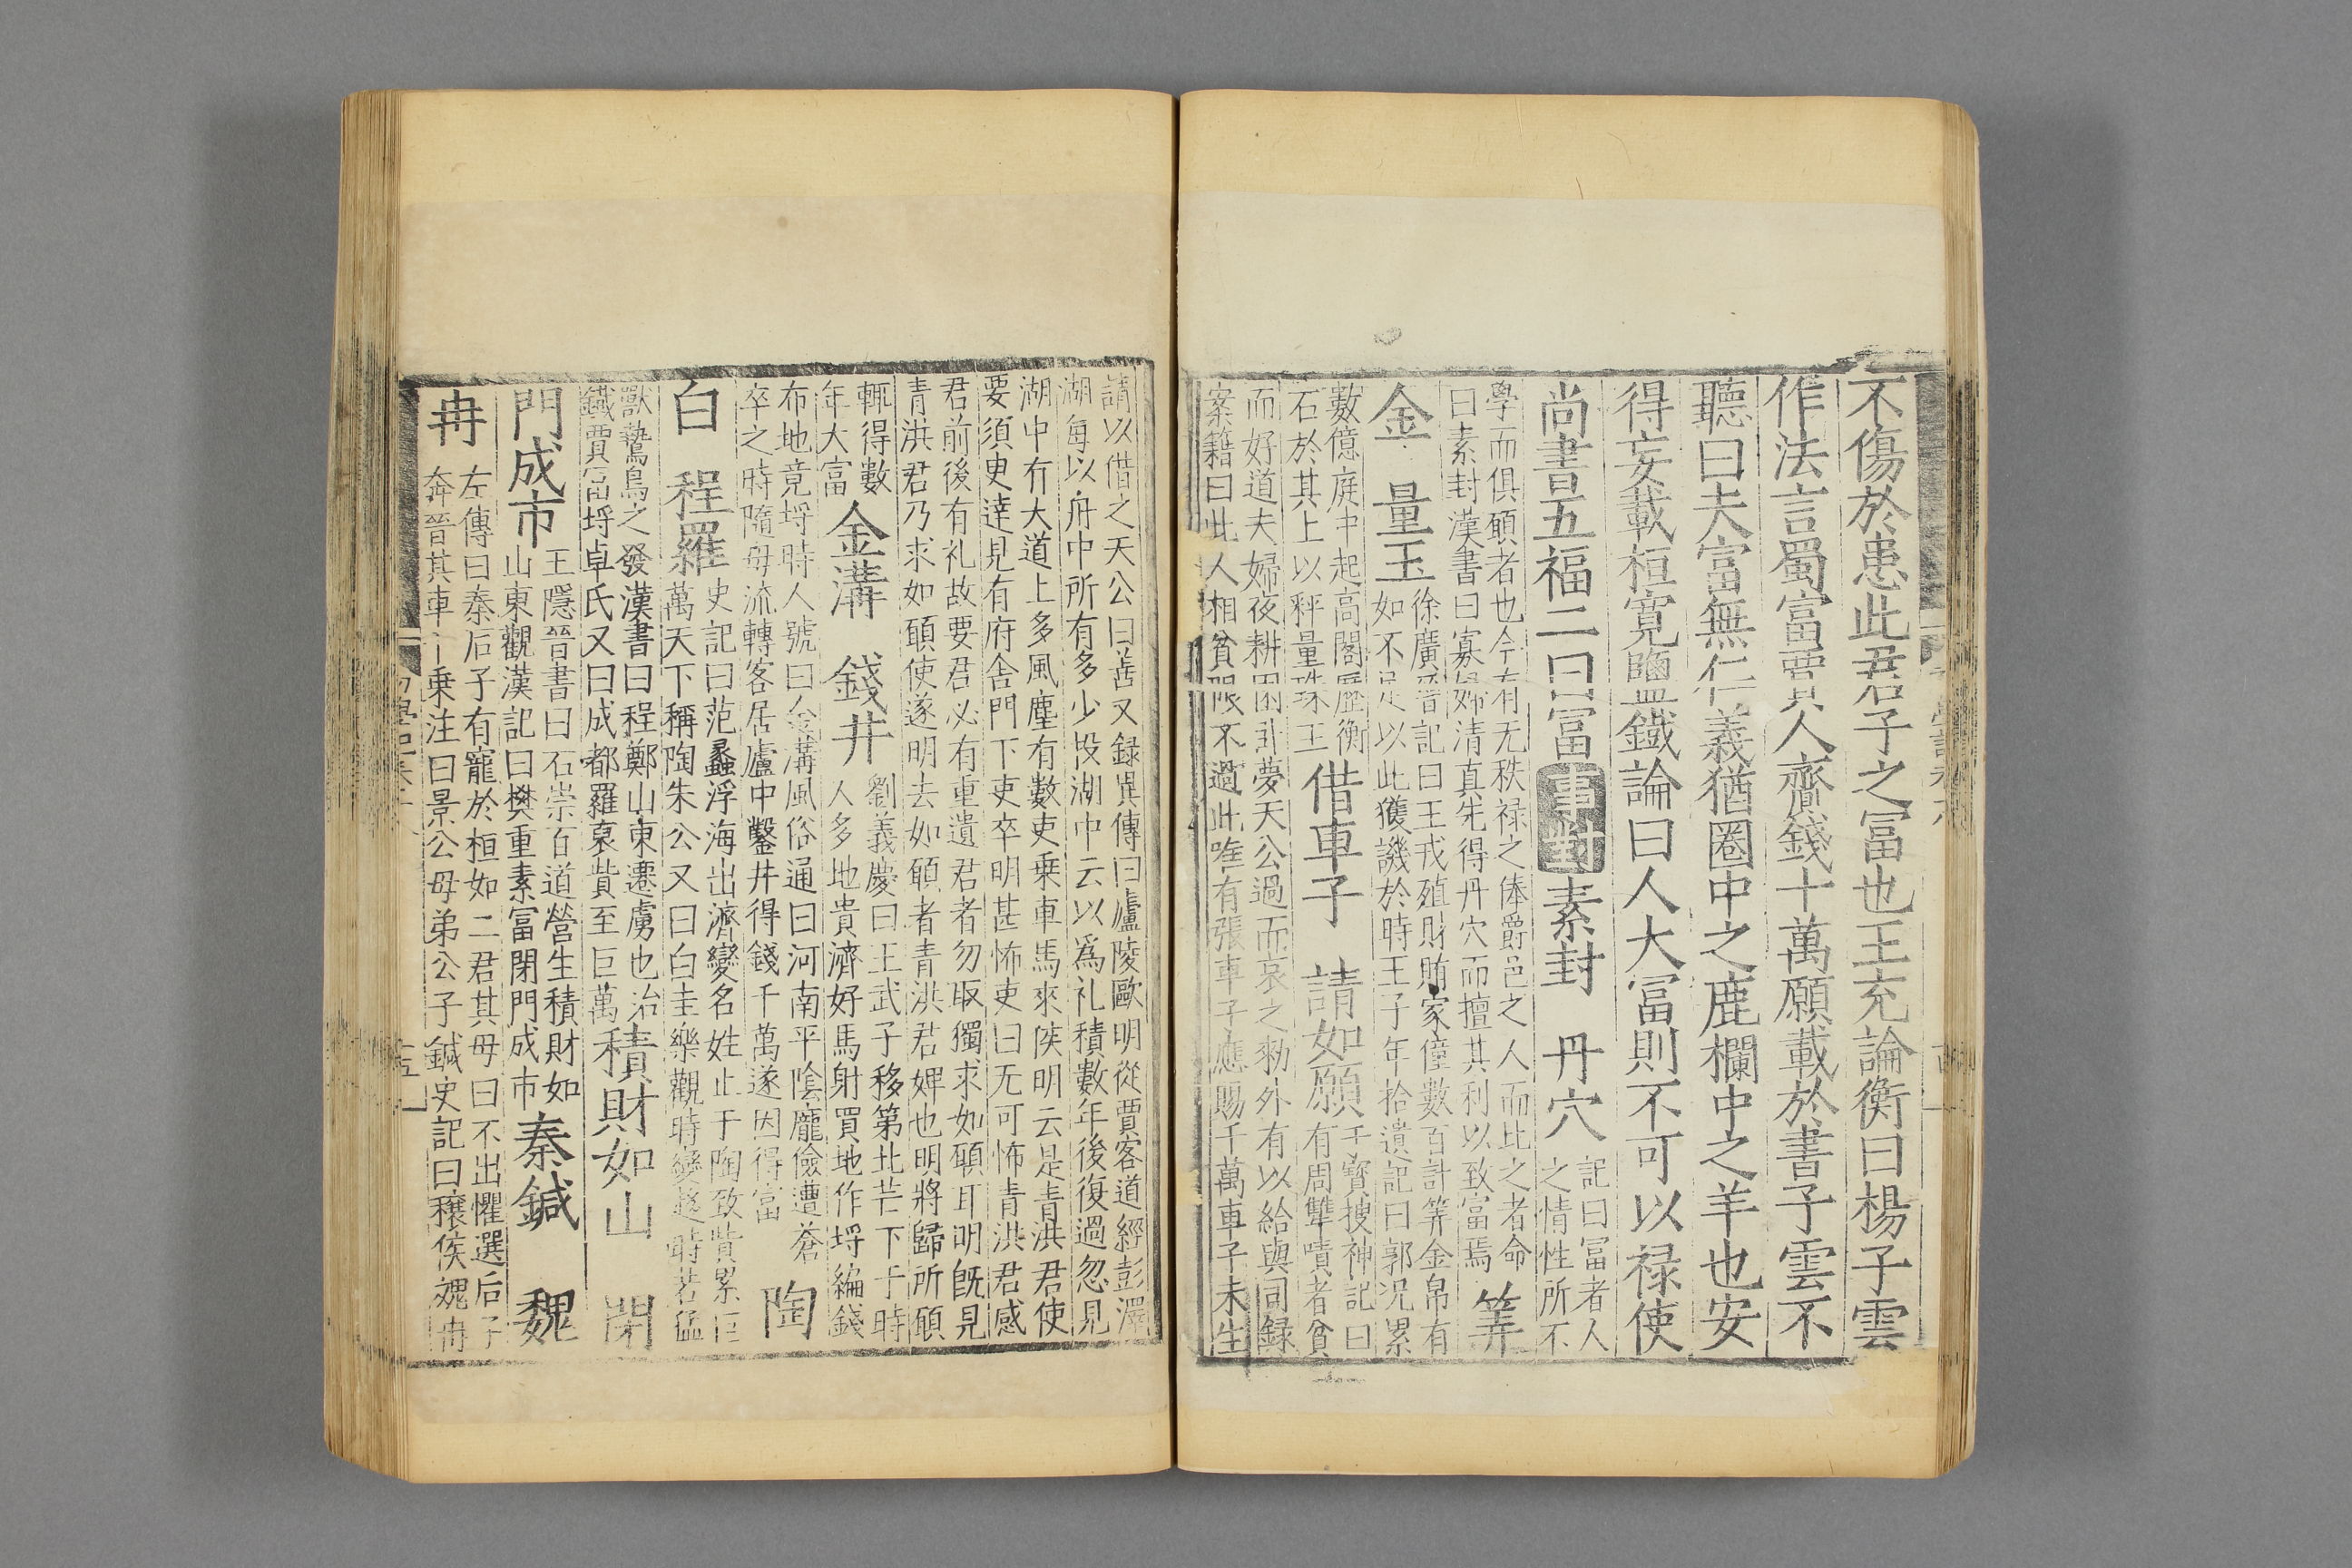 不傷於患此君子之冨也王充論衡曰楊子雲
作法言蜀富賈人齎錢十萬願載於書子雲不
聽曰夫富無仁義猶圈中之鹿欄中之羊也安
得妄載桓寬鹽鐵論曰人大冨則不可以禄使
尚書五福二曰冨
事對
素封 丹穴
記曰冨者人
之情性所不
學而俱願者也今有无秩禄之俸爵邑之人而比之者命
曰素封漢書曰寡婦清真先得丹穴而擅其利以致富焉
筭
金 量玉
徐廣晉記曰王戎殖財賄家僮數百計筭金帛有
如不足以此獲譏於時王子年拾遺記曰郭况累
數億庭中起高閣厝衡
石於其上以秤量珠玉
借車子 請如願
干寶搜神記曰
有周犨嘖者貧
而好道夫婦夜耕困卧夢天公過而哀之勑外有以給與司録
案籍曰此人相貧限不過此唯有張車子應賜千萬車子未生
請以借之天公曰善又録異傳曰廬陵歐明從賈客道經彭澤
湖每以舟中所有多少投湖中云以爲礼積數年後復過忽見
湖中有大道上多風塵有數吏乗車馬來侯明云是青洪君使
要須臾達見有府舍門下吏卒明甚怖吏曰无可怖青洪君感
君前後有礼故要君必有重遺君者勿取獨求如願耳明旣見
青洪君乃求如願使逐明去如願者青洪君婢也明將歸所願
輒得數
年大富
金溝 錢井
劉義慶曰王武子移第北芒下于時
人多地貴濟好馬射買地作埒編錢
布地竟埒時人號曰金溝風俗通曰河南平陰龐儉遭蒼
卒之時隨母流轉客居廬中鑿井得錢千萬遂因得富
陶
白 程羅
史記曰范蠡浮海出濟變名姓止于陶致貲累巨
萬天下稱陶朱公又曰白圭樂觀時變趍時若猛
獸鷙鳥之發漢書曰程鄭山東遷虜也冶
鐵賈富埒卓氏又曰成都羅裒貲至巨萬
積財如山 閉
門成市
王隱晉書曰石崇百道營生積財如
山東觀漢記曰樊重素冨閉門成市
秦鍼 魏
冉
左傳曰秦后子有寵於桓如二君其母曰不出懼選后子
奔晉其車千乗注曰景公母弟公子鍼史記曰穰侯魏冉